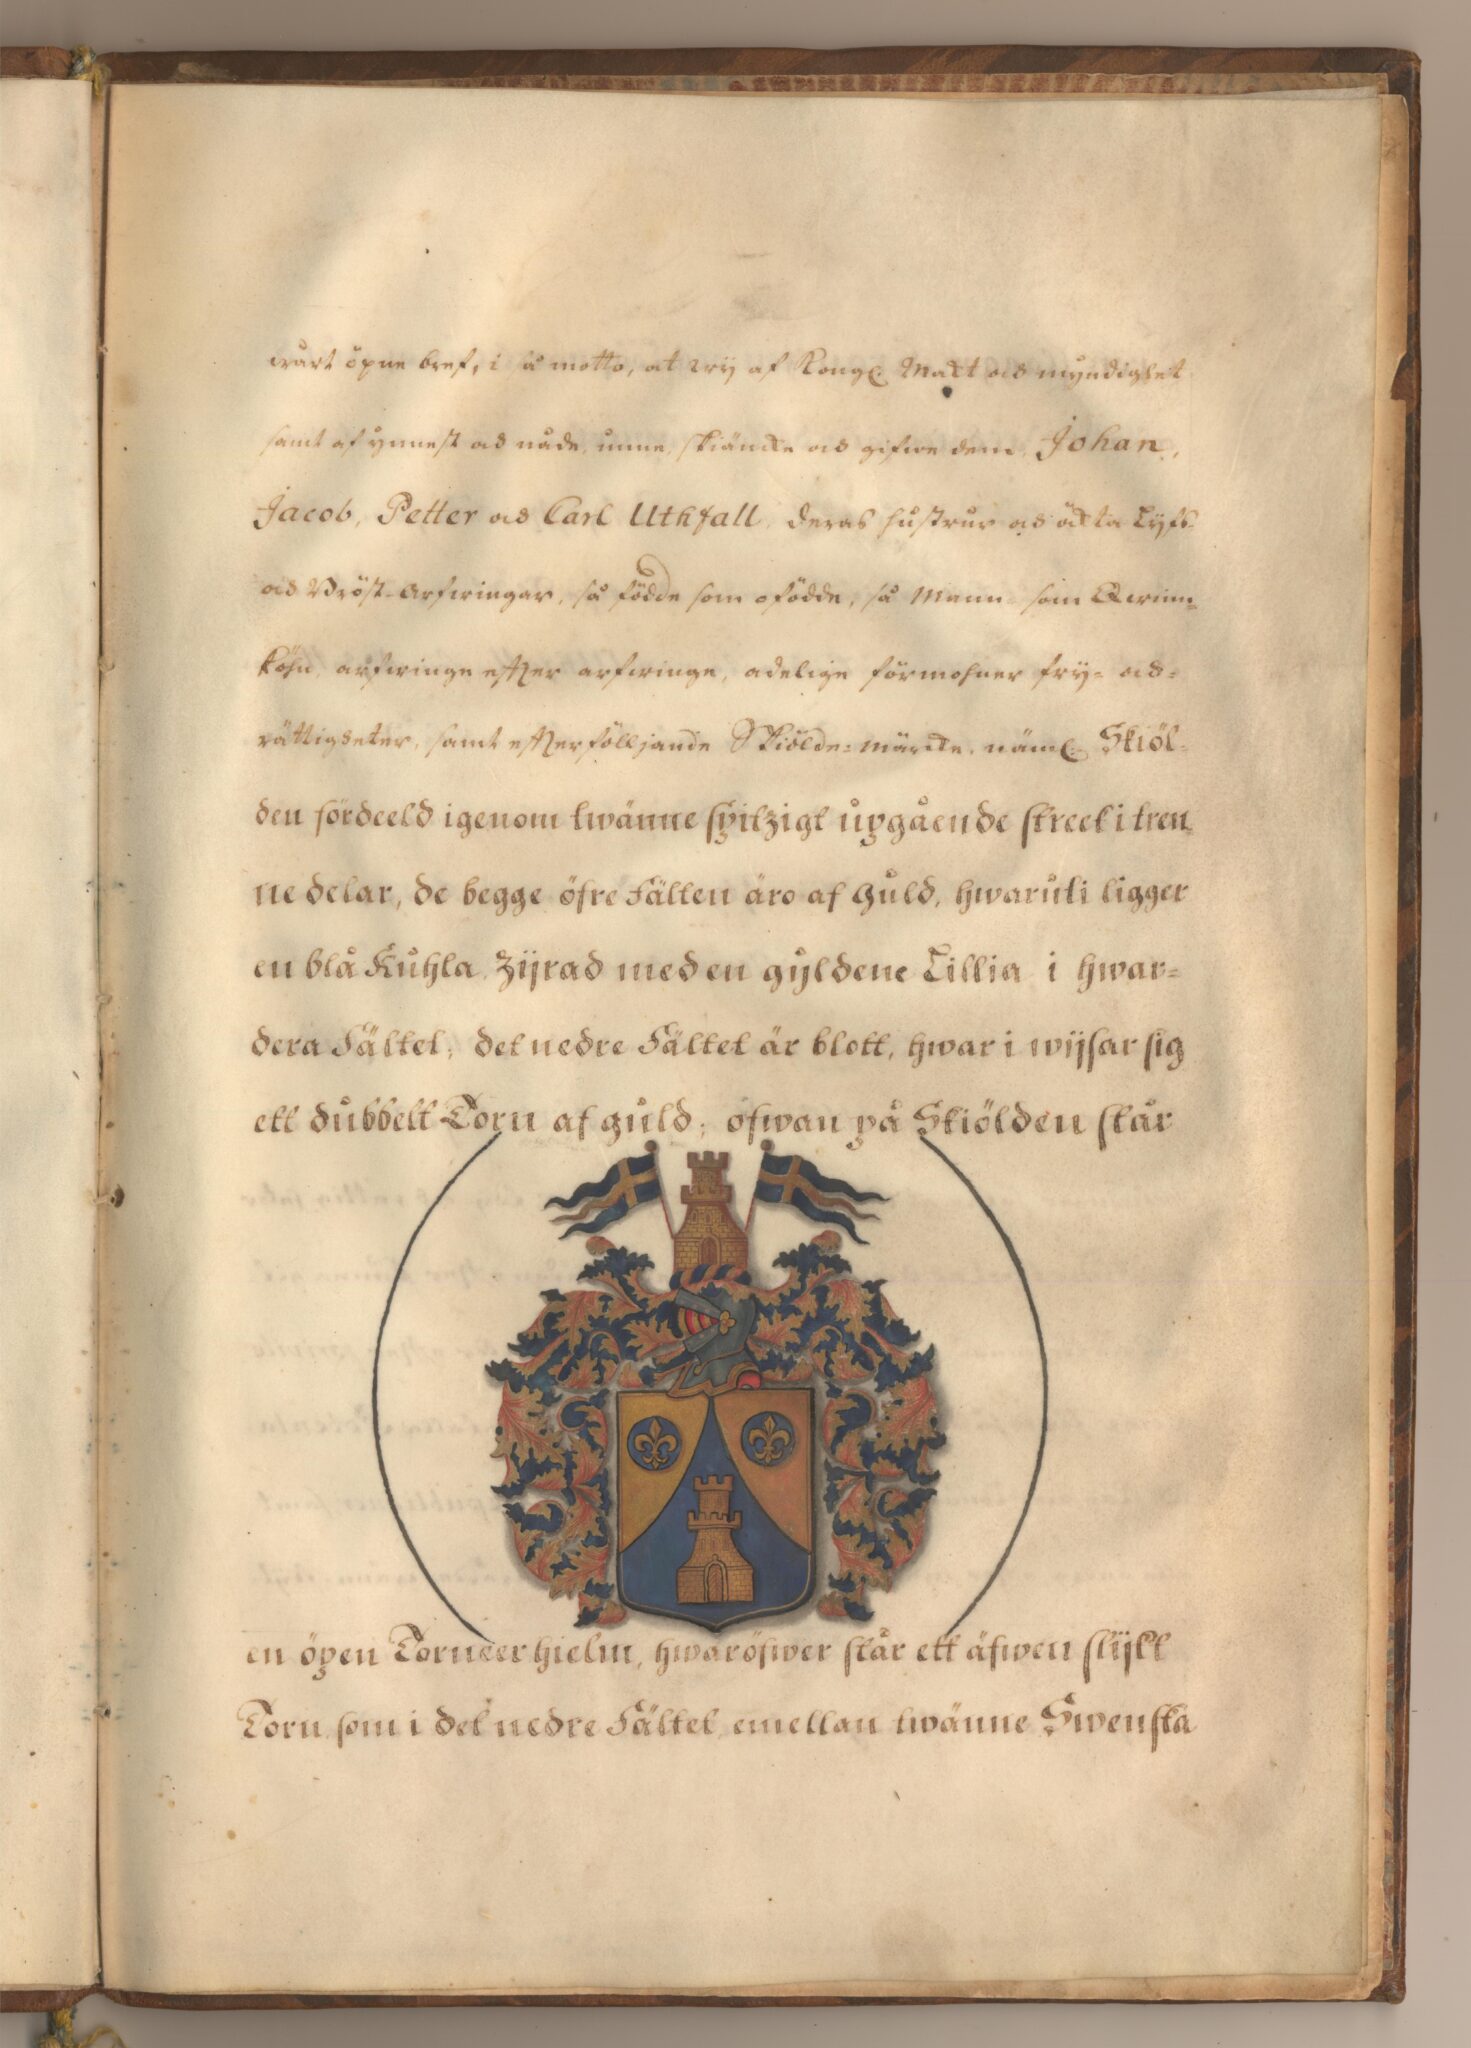 wårt öpne bref, i så motto, at wij af Kongl. Macht och myndighet
samt af ynnest och nåde, unne, skiäncke och gifwe dem, Johan,
Jacob, Petter och Carl Uthfall, deras hustrur och äckta Lijfs-
och Bröst-Arfwingar, så födde som ofödde, så Mann- som Qwinn-
köhn, arfwinge effter arfwinge, adelige förmohner frij- och-
rättigheter, samt effterfölljande Skiölde-märcke, näml. Skiöl-
den fördeeld igenom twänne spitzigt upgående streek i tren-
ne delar, de begge öfre Fälten äro af Guld, hwaruti ligger
en blå Kuhla, Zijrad med en gyldene Lillia i hwar-
dera Fältet, det nedre Fältet är blott, hwar i wijsar sig
ett dubbelt Torn af guld; ofwan på Skiölden står
en öpen Torneerhielm, hwaröfwer står ett äfwen slijkt
Torn, som i det nedre Fältet, emellan twänne Swenska